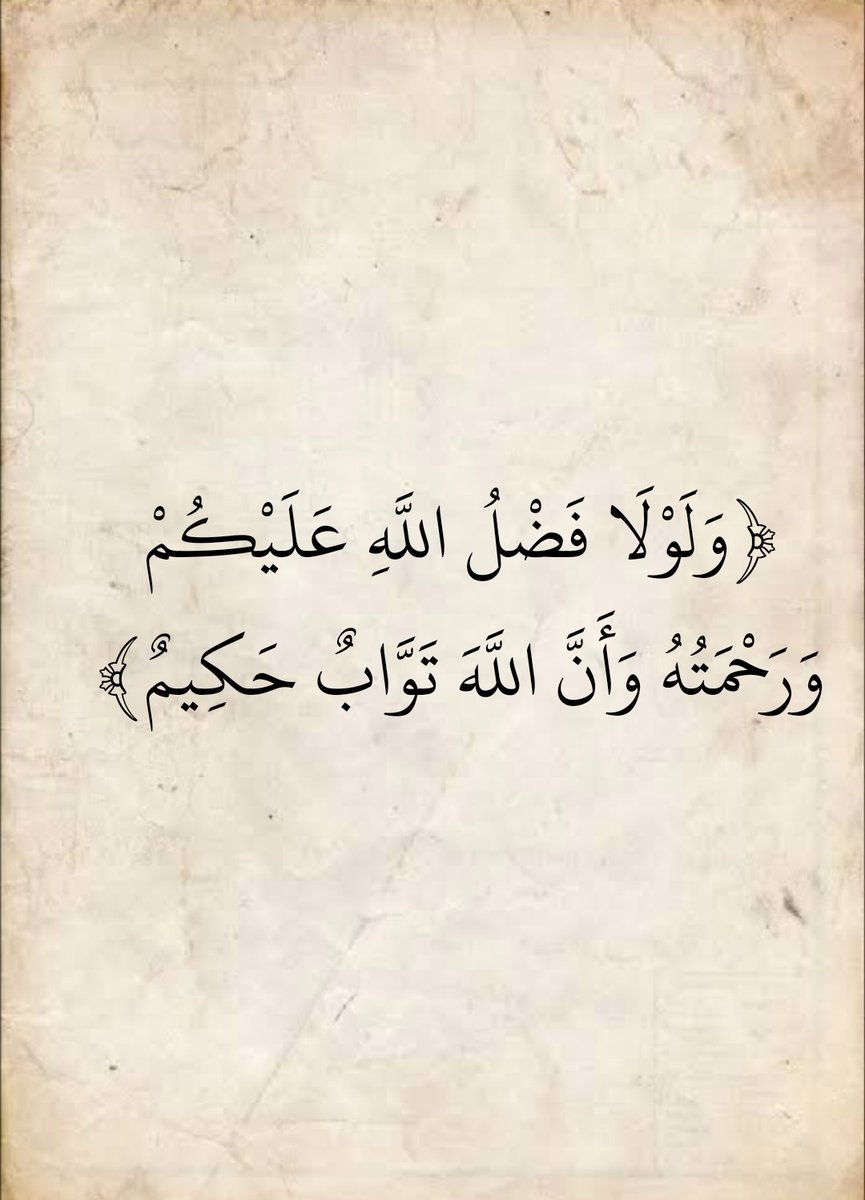 ﴿وَلَوْلَا فَضْلُ اللَّهِ عَلَيْكُمْ
وَرَحْمَتُهُ وَأَنَّ اللَّهَ تَوَّابٌ حَكِيمٌ﴾